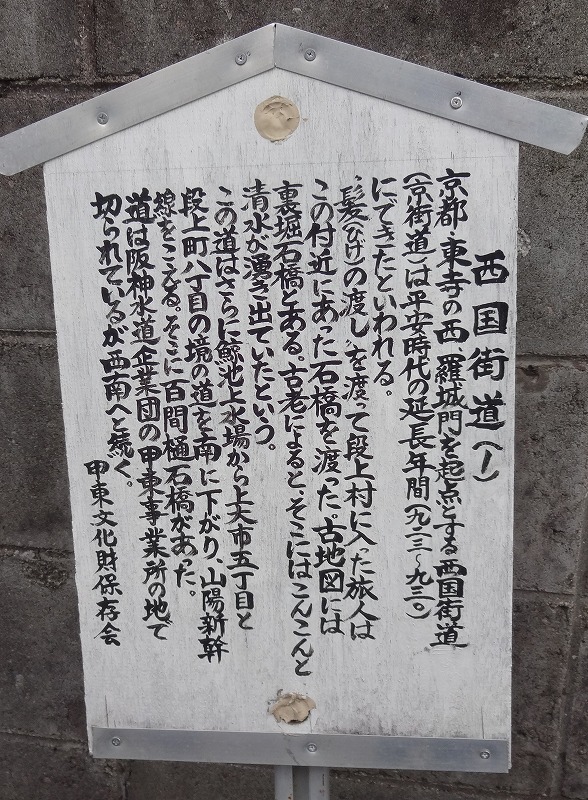 西国街道(一)
京都・東寺の西 羅城門を起点とする西国街道
(京街道)は平安時代の延長年間(九二三〜九三〇)
にできたといわれる。
、髪(ひげ)の渡し、を渡って段上村に入った旅人は
この付近にあった石橋を渡った。古地図には
裏堀石橋とある。古老によると、そこにはこんこんと
清水が湧き出ていたという。
この道はさらに鯨池上水場から上大市五丁目と
段上町八丁目の境の道を南に下がり、山陽新幹
線をこえる。そこに百間樋石橋があった。
道は阪神水道企業団の甲東事業所の地で
切られているが西南へと続く。
甲東文化財保存会